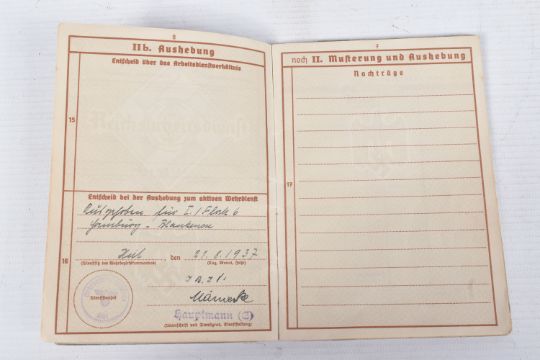 6
IIb. Aushebung
Entscheid über das Arbeitsdienstverhältnis
15
Entscheid bei der Aushebung zum aktiven Wehrdienst
für I. / Flak 6
Hamburg - Blankenese
16
, den 21.8.1937
(Tag, Monat, Jahr)
Dienststempel
Hauptmann (E)
(Unterschrift und Dienstgrad, Dienststellung)
7
noch II. Musterung und Aushebung
Nachträge
17